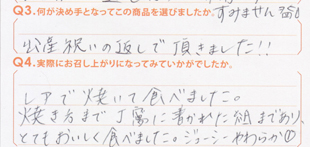 Q3.何が決め手となってこの商品を選びましたか。すみません
出産祝いの返しで頂きました!!
Q4.実際にお召し上がりになってみていかがでしたか。
レアで焼いて食べました。
焼き方まで丁寧に書かれた紙まであり、
とてもおいしく食べました。ジューシーやわらか①